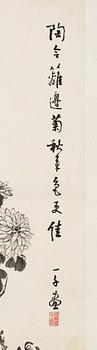 陶令籬邊菊秋來色更佳
一子畫